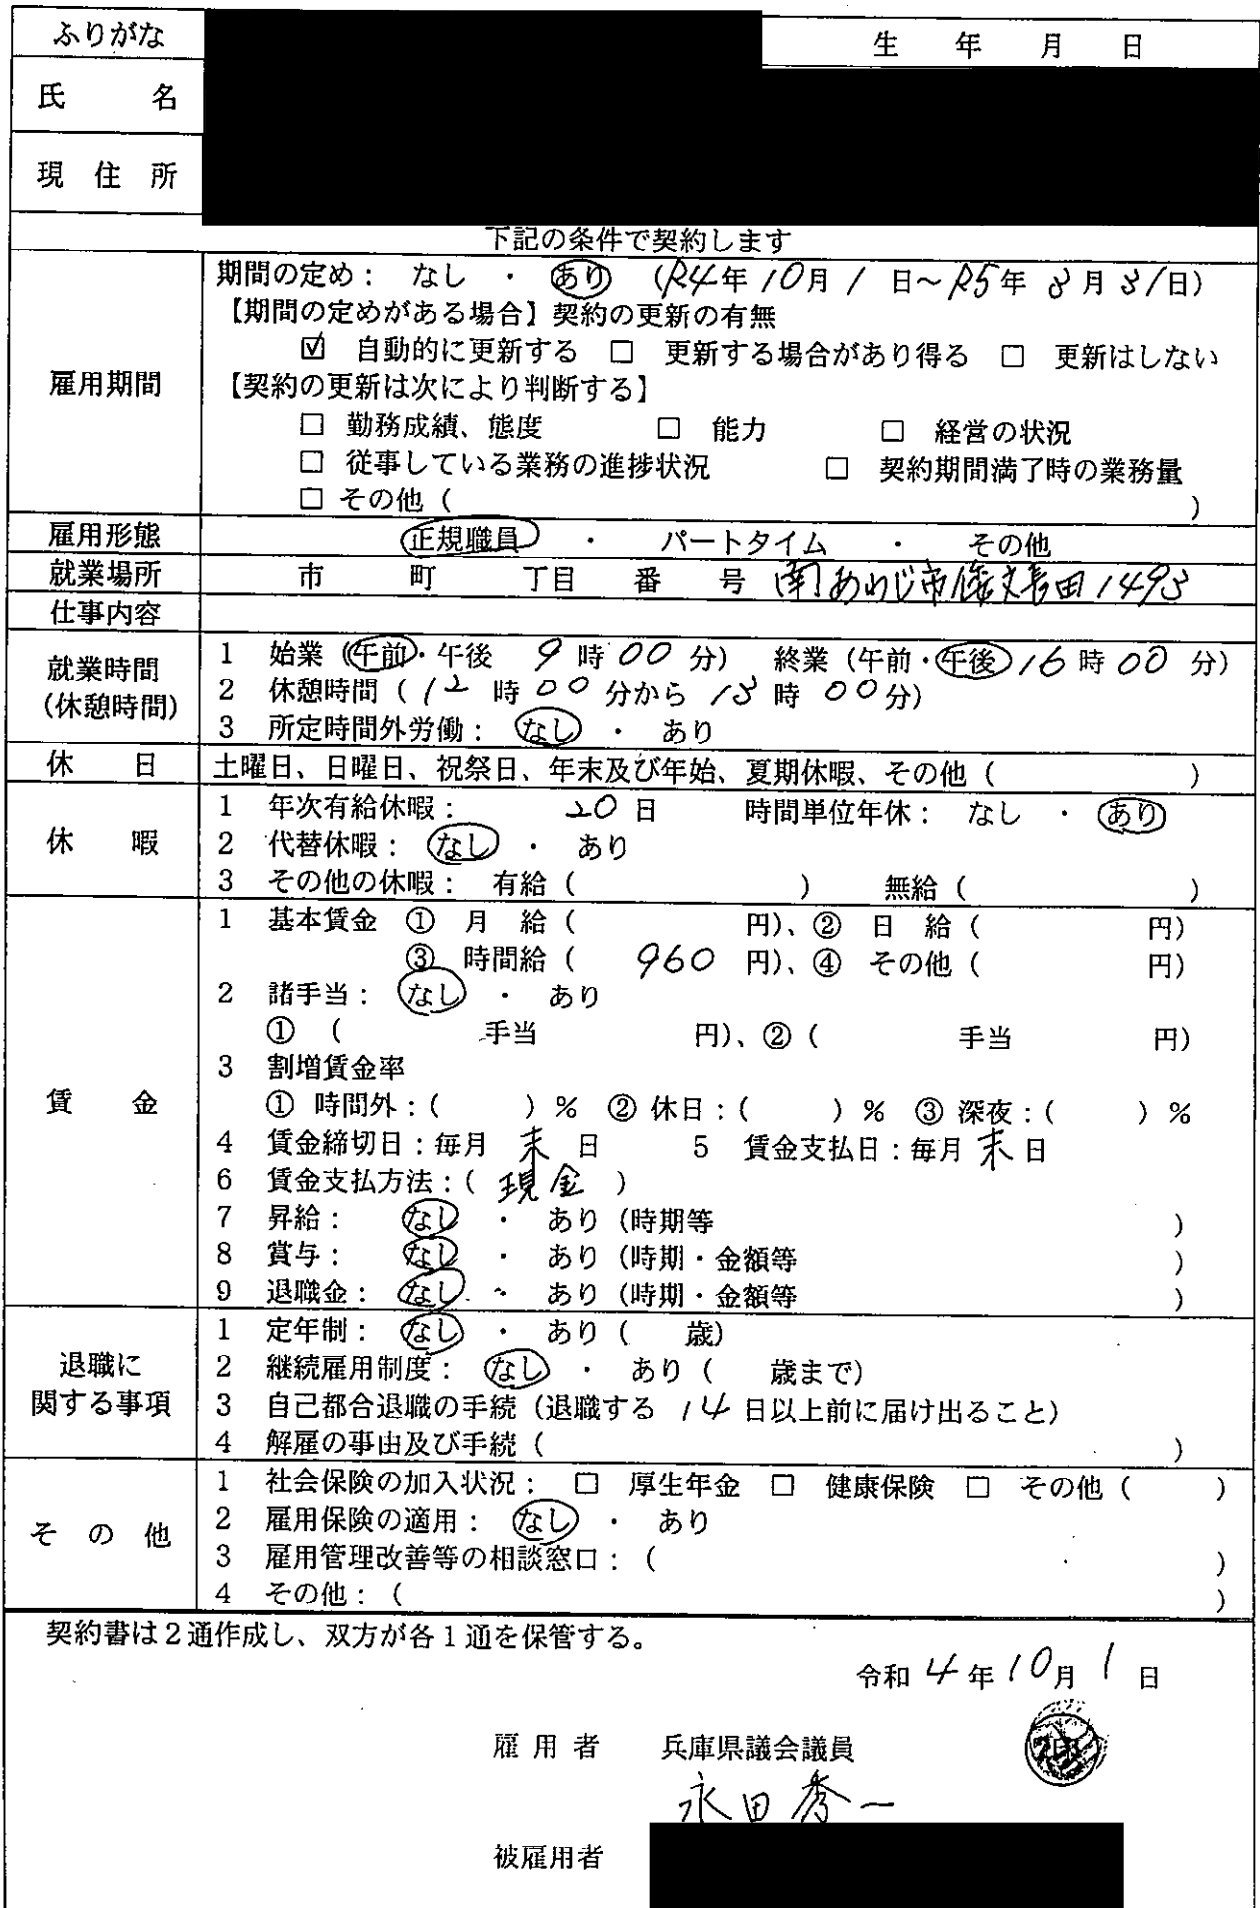 ふりがな
生 年 月 日
氏 名
現 住 所
下記の条件で契約します
雇用期間
期間の定め： なし ・ あり （R4年10月1日～R5年3月31日）
【期間の定めがある場合】契約の更新の有無
☑ 自動的に更新する □ 更新する場合があり得る □ 更新はしない
【契約の更新は次により判断する】
□ 勤務成績、態度 □ 能力 □ 経営の状況
□ 従事している業務の進捗状況 □ 契約期間満了時の業務量
□ その他（ ）
雇用形態 正規職員 ・ パートタイム ・ その他
就業場所 市 町 丁目 番 号 南あわじ市倭文長田1493
仕事内容
就業時間
（休憩時間）
1 始業（午前・午後 9時00分） 終業（午前・午後 16時00分）
2 休憩時間（12時00分から13時00分）
3 所定時間外労働： なし ・ あり
休 日 土曜日、日曜日、祝祭日、年末及び年始、夏期休暇、その他（ ）
休 暇
1 年次有給休暇： 20日 時間単位年休： なし ・ あり
2 代替休暇： なし ・ あり
3 その他の休暇： 有給（ ） 無給（ ）
賃 金
1 基本賃金 ① 月 給（ 円）、② 日 給（ 円）
③ 時間給（ 960 円）、④ その他（ 円）
2 諸手当： なし ・ あり
① （ 手当 円）、②（ 手当 円）
3 割増賃金率
① 時間外：（ ）％ ② 休日：（ ）％ ③ 深夜：（ ）％
4 賃金締切日：毎月 末 日 5 賃金支払日：毎月 末 日
6 賃金支払方法：（ 現金 ）
7 昇給： なし ・ あり（時期等 ）
8 賞与： なし ・ あり（時期・金額等 ）
9 退職金： なし ・ あり（時期・金額等 ）
退職に
関する事項
1 定年制： なし ・ あり（ 歳）
2 継続雇用制度： なし ・ あり（ 歳まで）
3 自己都合退職の手続（退職する 14 日以上前に届け出ること）
4 解雇の事由及び手続（ ）
そ の 他
1 社会保険の加入状況： □ 厚生年金 □ 健康保険 □ その他（ ）
2 雇用保険の適用： なし ・ あり
3 雇用管理改善等の相談窓口：（ ）
4 その他：（ ）
契約書は2通作成し、双方が各1通を保管する。
令和 4 年 10 月 1 日
雇 用 者 兵庫県議会議員
永田秀一
被雇用者